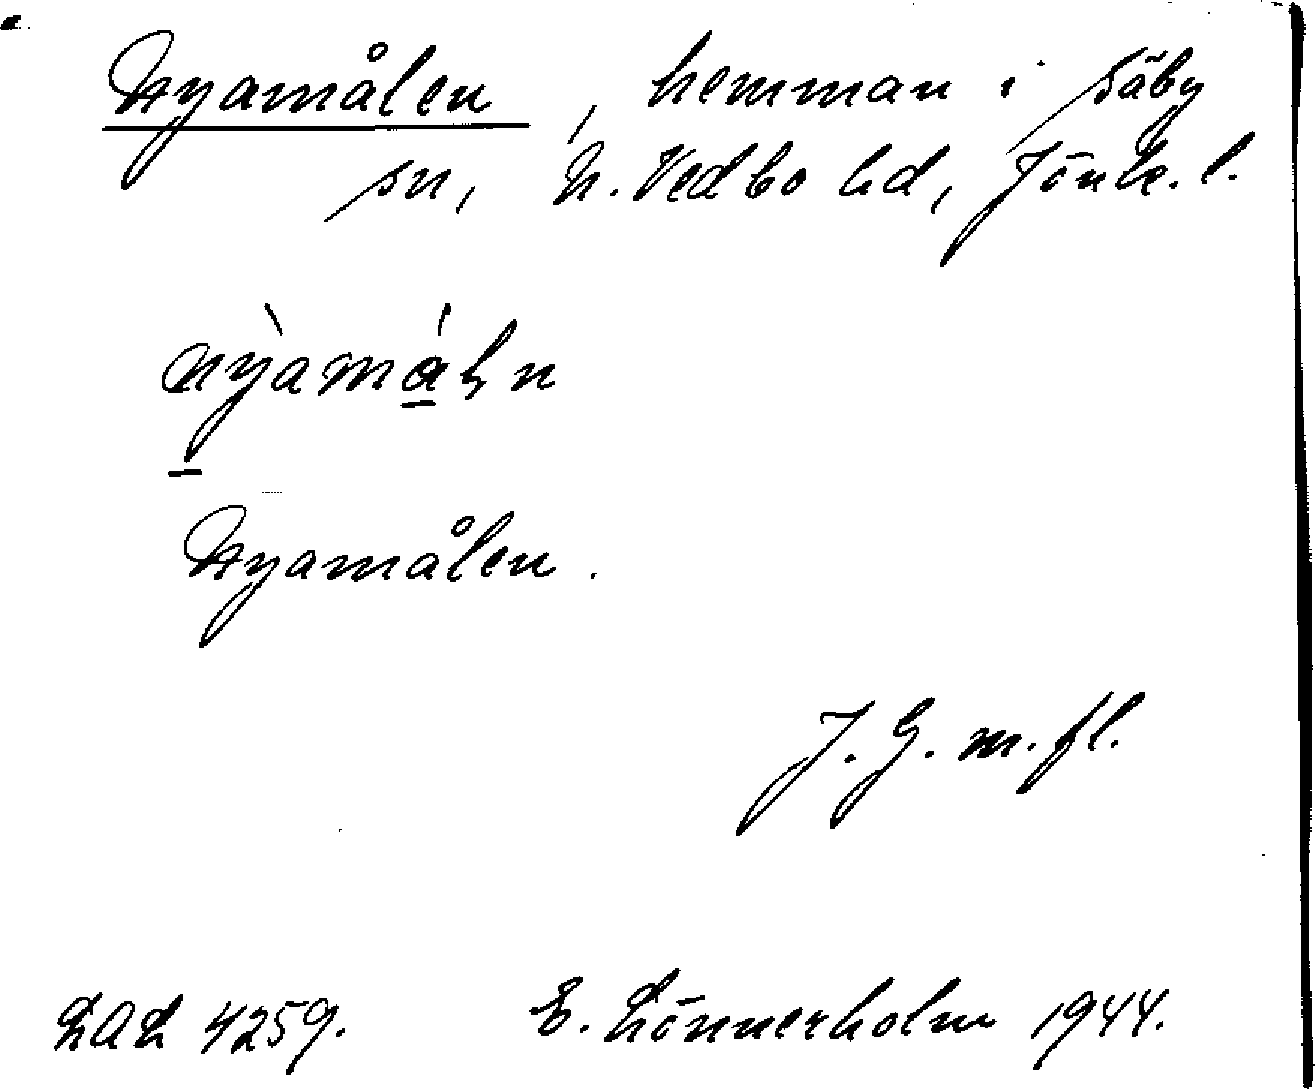 Nyamålen, hemman i Säby
sn, N. Vedbo hd, Jönk. l.
nỳamáln
Nyamålen.
J. G. m. fl.
LAL 4259. E. Lönnerholm 1944.